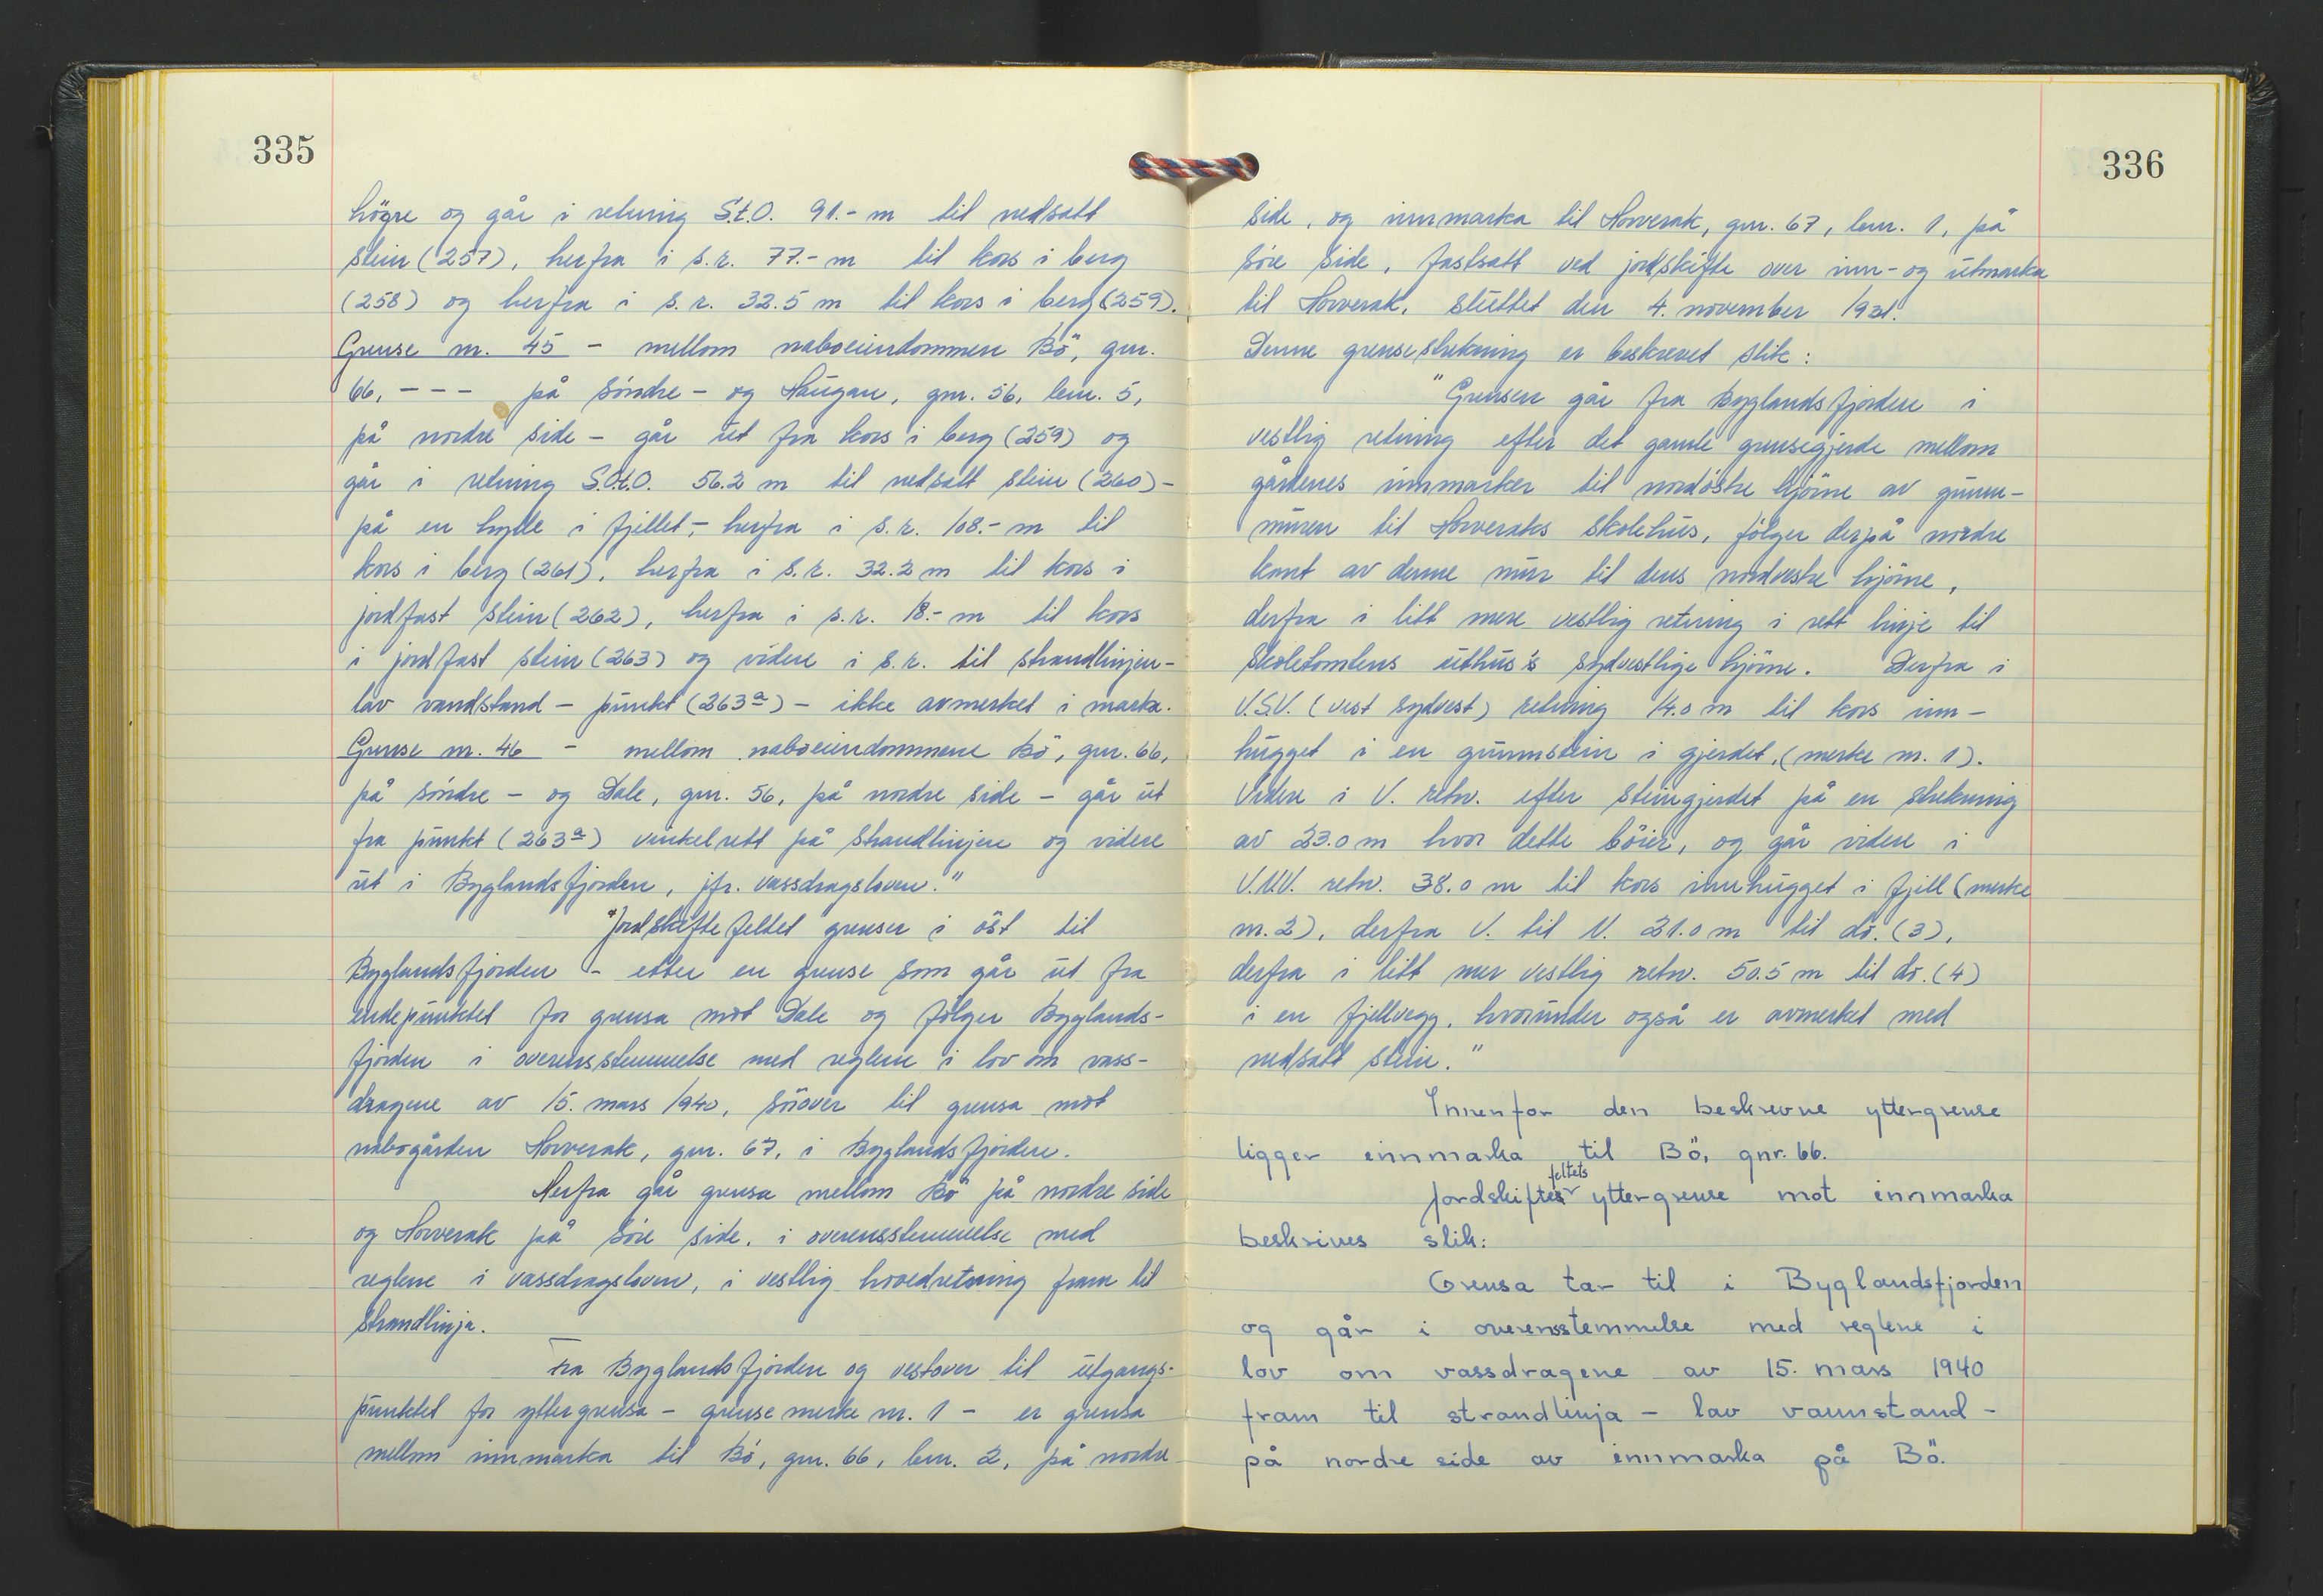 335
högre og går i retning S.t.O. 91.- m til nedsatt
stein (257), herfra i s.r. 77.- m til kors i berg
(258) og herfra i s.r. 32.5 m til kors i berg (259).
Grense nr. 45 - mellom naboeiendommen Bö, gnr.
66, - - - på söndre - og Haugan, gnr. 56, bnr. 5,
på nordre side - går ut fra kors i berg (259) og
går i retning S.O.t.O. 56.2 m til nedsatt stein (260) -
på en hylle i fjellet, - herfra i s.r. 108.- m til
kors i berg (261), herfra i s.r. 32.2 m til kors i
jordfast stein (262), herfra i s.r. 18.- m til kors
i jordfast stein (263) og videre i s.r. til strandlinjen -
lav vandstand - punkt (263a) - ikke avmerket i marka.
Grense nr. 46 - mellom naboeiendommene Bö, gnr. 66,
på söndre - og Dale, gnr. 56, på nordre side - går ut
fra punkt (263a) vinkelrett på strandlinjen og videre
ut i Byglandsfjorden, jfr. vassdragsloven."
"Jordskiftefeltet grenser i öst til
Byglandsfjorden - etter en grense som går ut fra
endepunktet for grensa mot Dale og fölger Byglands-
fjorden i overensstemmelse med reglene i lov om vass-
dragene av 15. mars 1940, söover til grensa mot
nabogården Horverak, gnr. 67, i Byglandsfjorden.
Herfra går grensa mellom Bö på nordre side
og Horverak på söre side, i overensstemmelse med
reglene i vassdragsloven, i vestlig hovedretning fram til
strandlinja.
Fra Byglandsfjorden og vestover til utgangs-
punktet for yttergrensa - grensemerke nr. 1 - er grensa
mellom innmarka til Bö, gnr. 66, bnr. 2, på nordre
336
side, og innmarka til Horverak, gnr. 67, bnr. 1, på
söre side, fastsatt ved jordskifte over inn- og utmarka
til Horverak, sluttet den 4. november 1931.
Denne grensestrekning er beskrevet slik:
"Grensen går fra Byglandsfjorden i
vestlig retning efter det gamle grensegjerde mellom
gårdenes innmarker til nordöstre hjörne av grunn-
muren til Horveraks skolehus, fölger derpå nordre
kant av denne mur til dens nordvestre hjörne,
derfra i litt mere vestlig retning i rett linje til
skoletomtens uthus's sydvestlige hjörne. Derfra i
V.S.V. (vest sydvest) retning 14.0 m til kors inn-
hugget i en grunnstein i gjerdet, (merke nr. 1).
Videre i V. retn. efter steingjerdet på en strekning
av 23.0 m hvor dette böier, og går videre i
V.N.V. retn. 38.0 m til kors innhugget i fjell (merke
nr. 2), derfra V. til N. 21.0 m til do. (3),
derfra i litt mer vestlig retn. 50.5 m til do. (4)
i en fjellvegg, hvorunder også er avmerket med
nedsatt stein."
Innenfor den beskrevne yttergrense
ligger innmarka til Bö, gnr. 66.
feltets
Jordskiftes yttergrense mot innmarka
beskrives slik:
Grensa tar til i Byglandsfjorden
og går i overensstemmelse med reglene i
lov om vassdragene av 15. mars 1940
fram til strandlinja - lav vannstand -
på nordre side av innmarka på Bö.